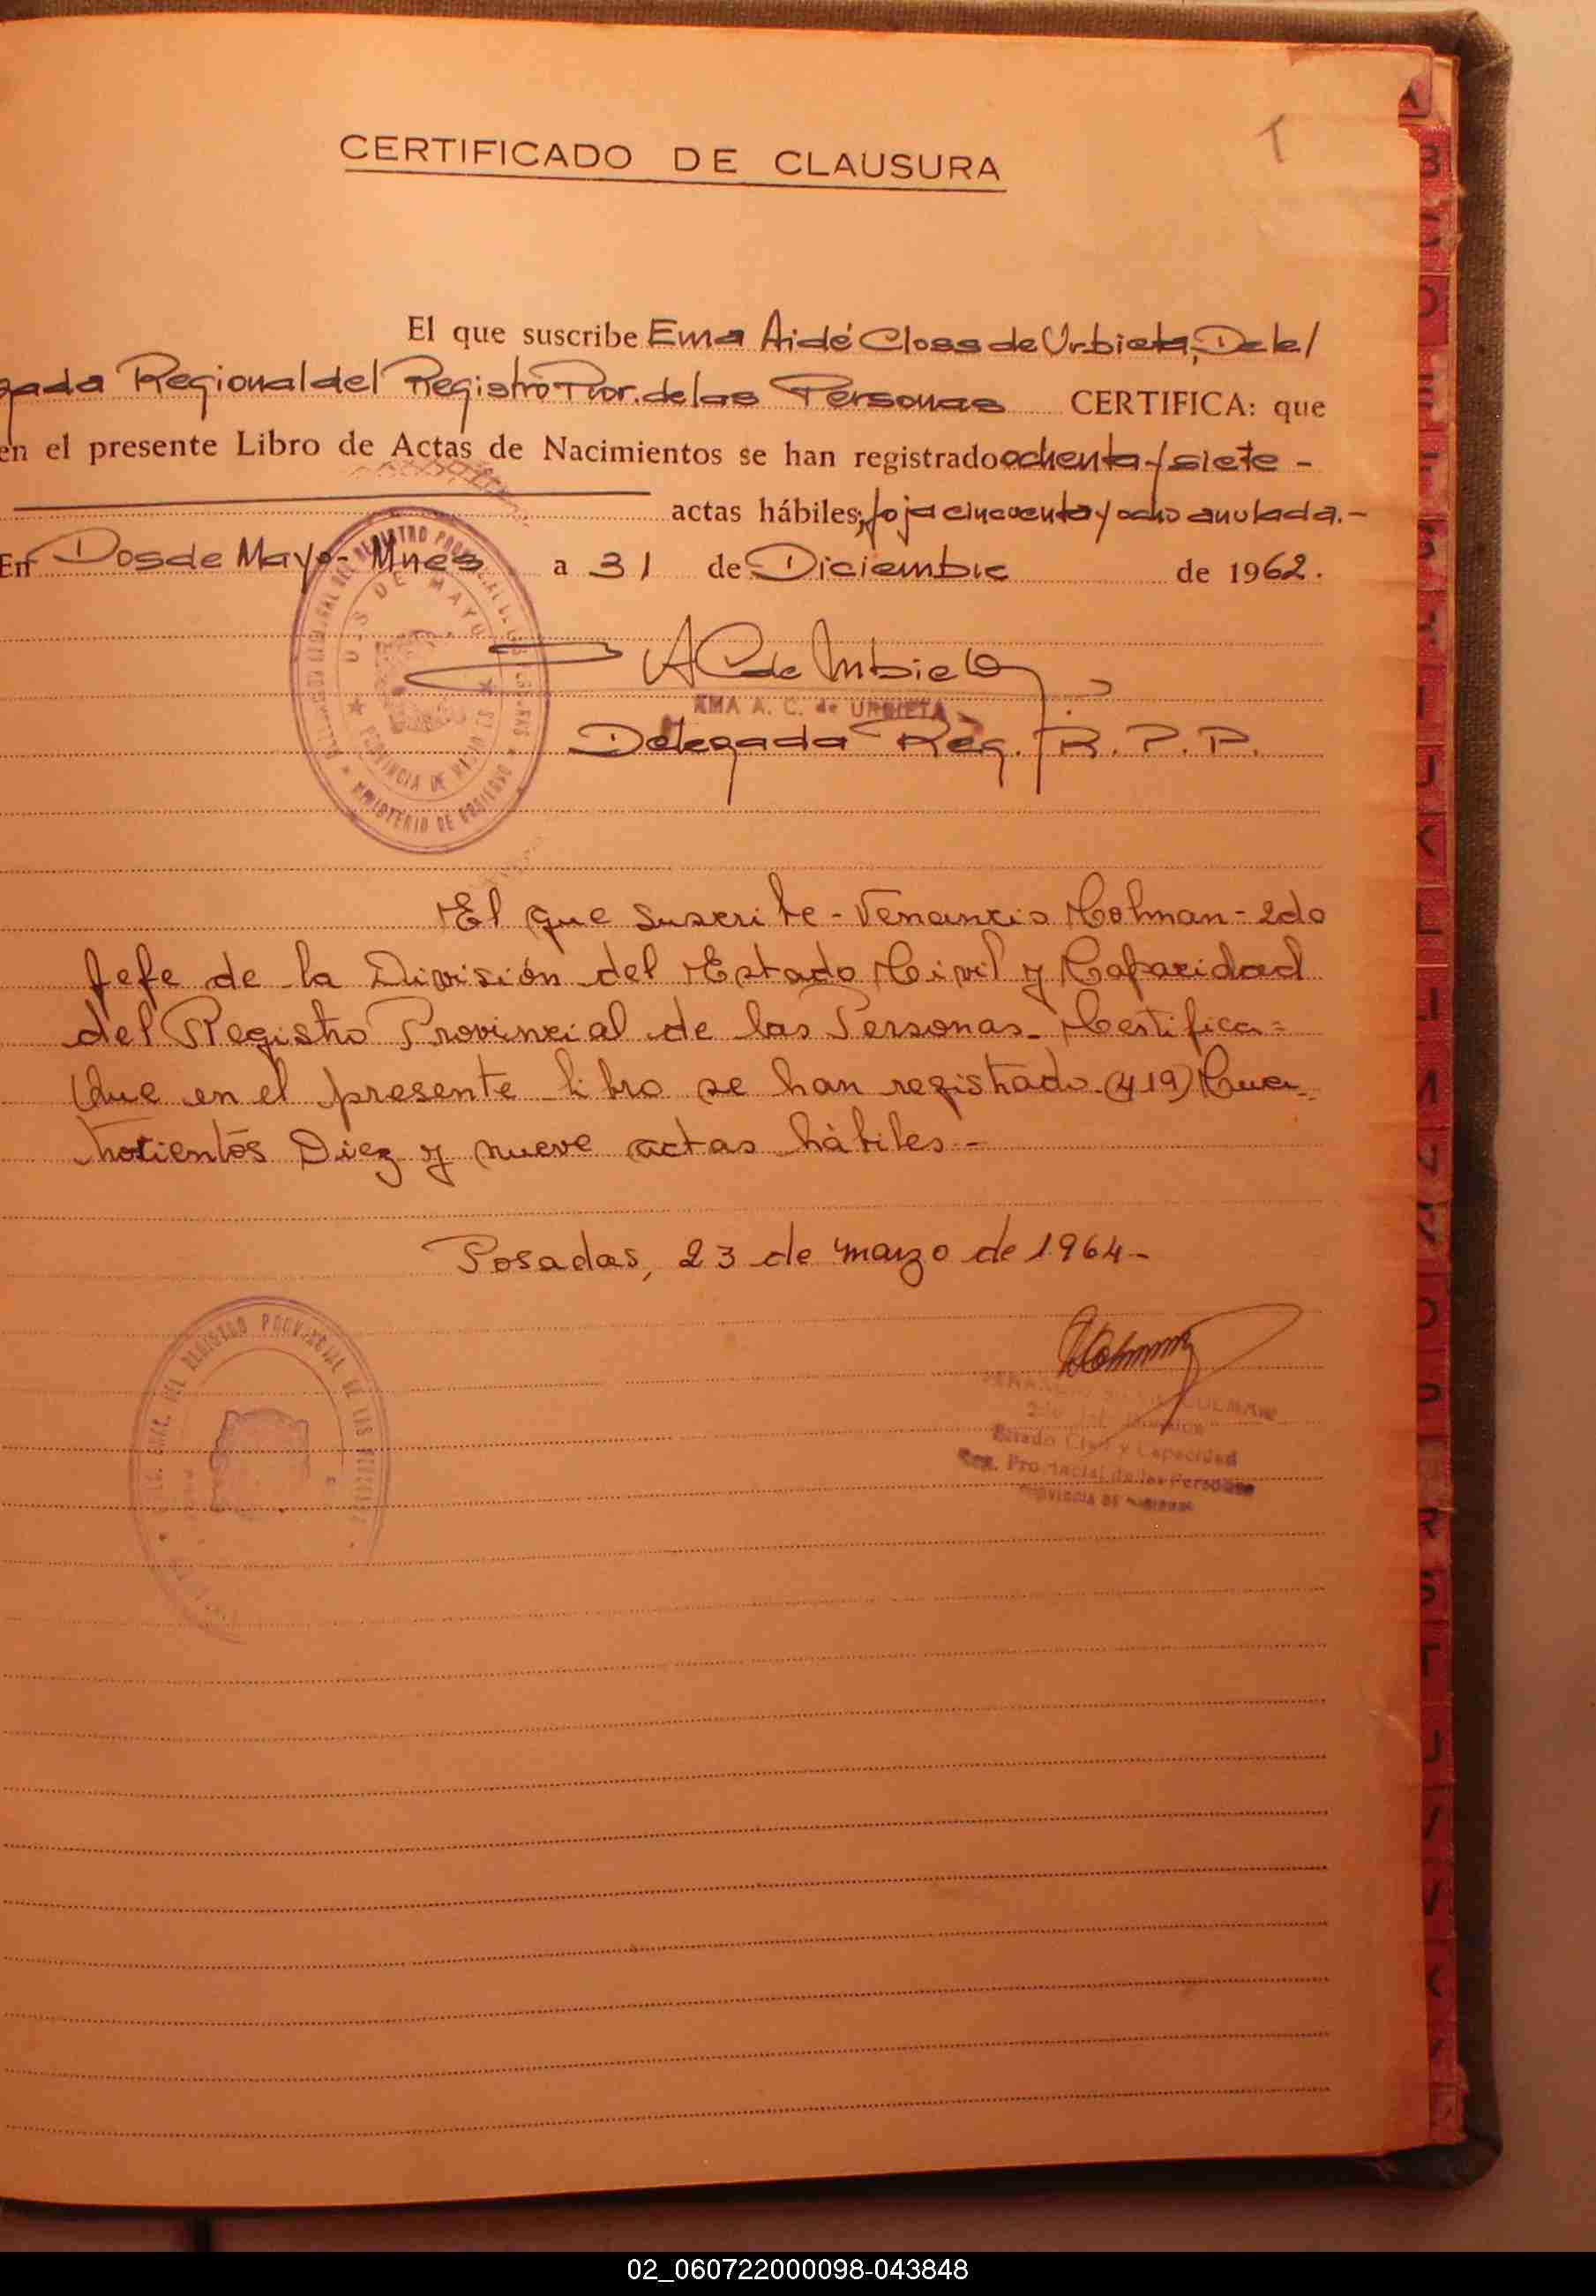 CERTIFICADO DE CLAUSURA
El que suscribe Ema Aidé Closs de Urbieta, Dele/
gada Regional del Registro Prov. de las Personas CERTIFICA: que
en el presente Libro de Actas de Nacimientos se han registrado ochenta y siete -
actas hábiles; foja cincuenta y ocho anulada.-
En Dos de Mayo - Mnes a 31 de Diciembre de 1962.
A C de Urbieta
EMA A. C. de URBIETA
Delegada Reg. R. P. P.
DEL REGISTRO PROVINCIAL DE LAS PERSONAS
DOS DE MAYO
PROVINCIA DE MISIONES
MINISTERIO DE GOBIERNO
El que suscribe - Venancio Colman - 2do
Jefe de la División del Estado Civil y Capacidad
del Registro Provincial de las Personas - Certifica =
Que en el presente libro se han registrado (419) Cua-
trocientos Diez y nueve actas hábiles -
Posadas, 23 de marzo de 1964 -
DEL REGISTRO PROVINCIAL DE LAS PERSONAS
COLMAN
2do Jefe División
Estado Civil y Capacidad
Reg. Provincial de las Personas
PROVINCIA DE MISIONES
A
B
C
D
E
F
G
H
I
J
K
L
M
N
O
P
R
S
T
U
V
02_060722000098-043848